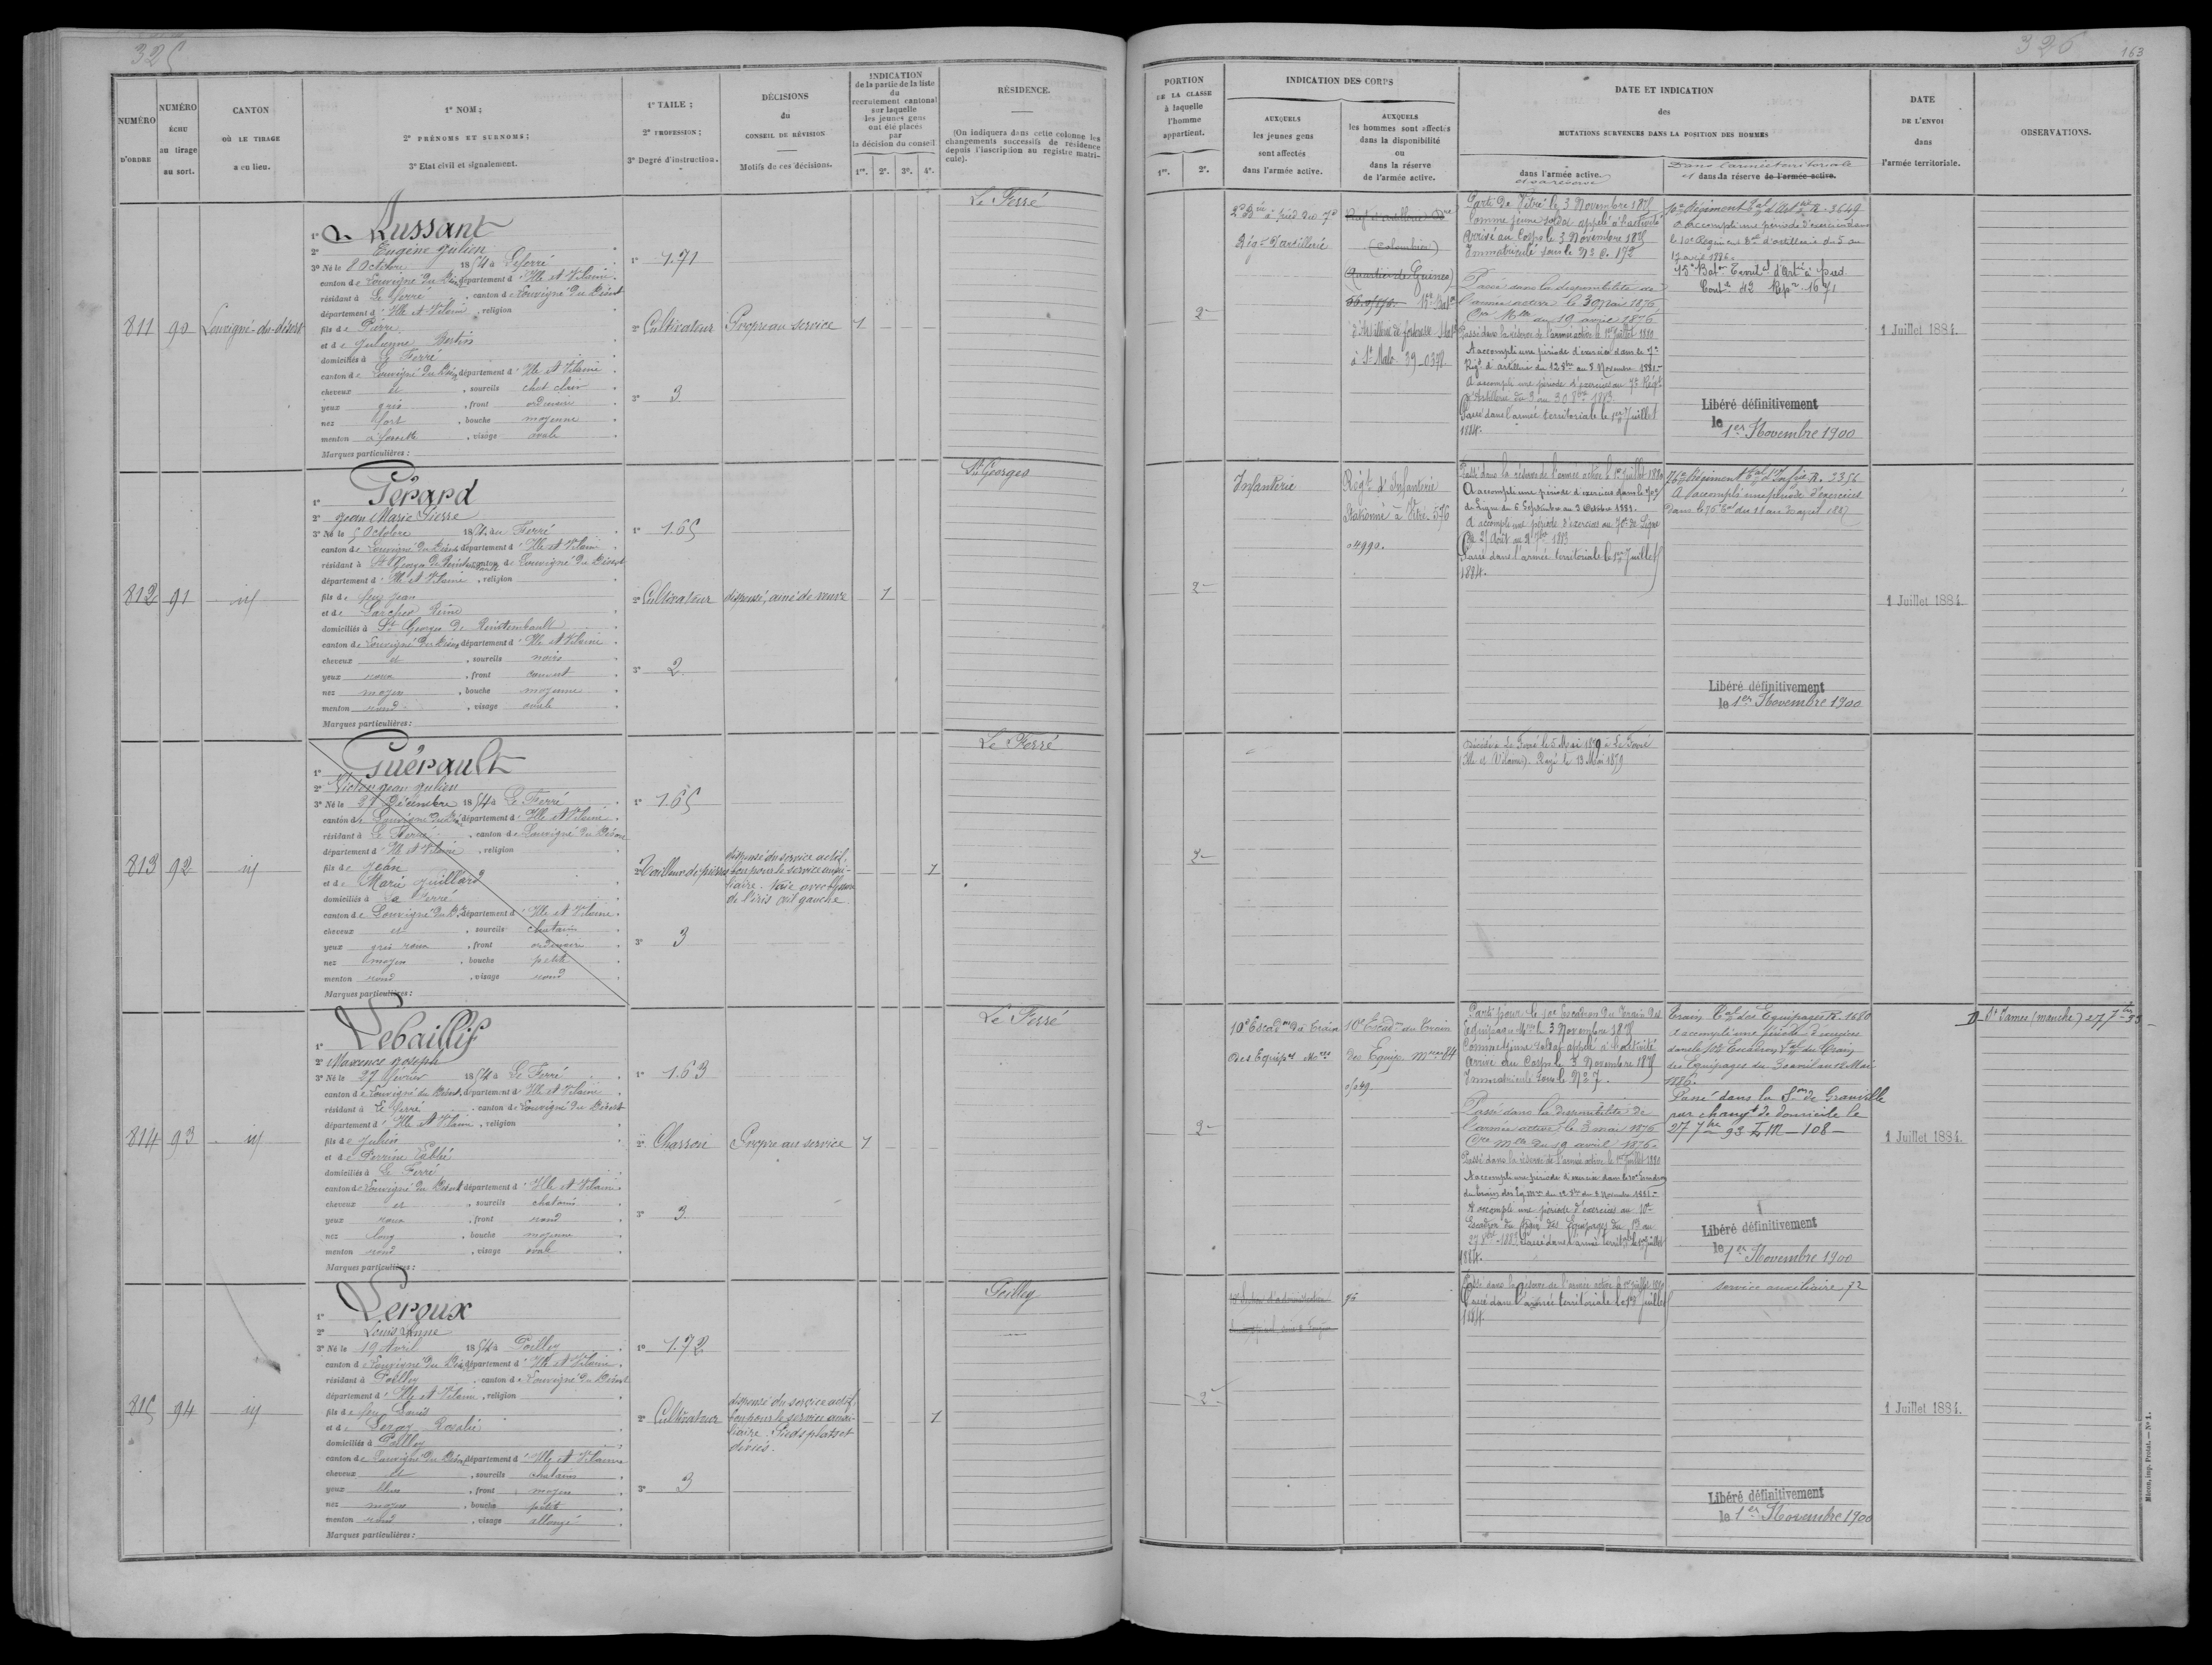 325
NUMÉRO
D'ORDRE
NUMÉRO
ÉCHU
au tirage
au sort.
CANTON
OÙ LE TIRAGE
a eu lieu.
1° NOM;
2° PRÉNOMS ET SURNOMS;
3° Etat civil et signalement.
1° TAILE;
2° PROFESSION;
3° Degré d'instruction.
DÉCISIONS
du
CONSEIL DE RÉVISION
Motifs de ces décisions.
INDICATION
de la partie de la liste
du
recrutement cantonal
sur laquelle
les jeunes gens
ont été placés
par
la décision du conseil
1re. 2e. 3e. 4e.
RÉSIDENCE.
(On indiquera dans cette colonne les
changements successifs de résidence
depuis l'inscription au registre matri-
cule).
811
90
Louvigné-du-désert
1°
Russant
2° Eugène Julien
3° Né le 8 Octobre 1854 à Leferré
canton de Louvigné du Dés département d'Ille et Vilaine
résidant à Le Ferré, canton de Louvigné du Désert
département d'Ille et Vilaine, religion
fils de Pierre
et de Julienne Bertin
domiciliés à Le Ferré
canton de Louvigné du Dés département d'Ille et Vilaine
cheveux et, sourcils chat clair
yeux gris, front ordinaire
nez fort, bouche moyenne
menton à fossette, visage ovale
Marques particulières:
1° 1.71
2° Cultivateur
3° 3
Propre au service
1
Le Ferré
812
91
id
1° Gérard
2° Jean Marie Pierre
3° Né le 5 Octobre 1854 au Ferré
canton de Louvigné du Désert département d'Ille et Vilaine
résidant à St Georges de Reintembault canton de Louvigné du Désert
département d'Ille et Vilaine, religion
fils de feu Jean
et de Larcher Reine
domiciliés à St Georges de Reintembault
canton de Louvigné du Désert département d'Ille et Vilaine
cheveux et, sourcils noirs
yeux roux, front couvert
nez moyen, bouche moyenne
menton rond, visage ovale
Marques particulières:
1° 1.65
2° Cultivateur
3° 2
dispensé, ainé de veuve
1
St Georges
813
92
id
1° Guérault
2° Victor Jean Julien
3° Né le 21 Décembre 1854 à Le Ferré
canton de Louvigné du Dés département d'Ille et Vilaine
résidant à Le Ferré, canton de Louvigné du Désert
département d'Ille et Vilaine, religion
fils de Jean
et de Marie Juillard
domiciliés à Le Ferré
canton de Louvigné du Dt département d'Ille et Vilaine
cheveux et, sourcils chatain
yeux gris roux, front ordinaire
nez moyen, bouche petite
menton rond, visage rond
Marques particulières:
1° 1.65
2° Tailleur de pierres
3° 3
dispensé du service actif,
bon pour le service auxi-
liaire. taie avec
de l'iris œil gauche
1
Le Ferré
814
93
id
1° Lebaillif
2° Maxence Joseph
3° Né le 27 février 1854 à Le Ferré
canton de Louvigné du Désert département d'Ille et Vilaine
résidant à Le Ferré, canton de Louvigné du Désert
département d'Ille et Vilaine, religion
fils de Julien
et de Perrine
domiciliés à Le Ferré
canton de Louvigné du Désert département d'Ille et Vilaine
cheveux et, sourcils chatains
yeux roux, front rond
nez long, bouche moyenne
menton rond, visage ovale
Marques particulières:
1° 1.63
2° Charron
3° 3
Propre au service
1
Le Ferré
815
94
id
1° Leroux
2° Louis Anne
3° Né le 19 Avril 1854 à Poilley
canton de Louvigné du Dés département d'Ille et Vilaine
résidant à Poilley, canton de Louvigné du Désert
département d'Ille et Vilaine, religion
fils de feu Louis
et de Leroy Rosalie
domiciliés à Poilley
canton de Louvigné du Désert département d'Ille et Vilaine
cheveux et, sourcils chatains
yeux bleus, front moyen
nez moyen, bouche petite
menton rond, visage allongé
Marques particulières:
1° 1.72
2° Cultivateur
3° 3
dispensé du service actif,
bon pour le service auxi-
liaire. Pieds plats et
déviés.
1
Poilley
326
163
PORTION
DE LA CLASSE
à laquelle
l'homme
appartient.
1re. 2e.
INDICATION DES CORPS
AUXQUELS
les jeunes gens
sont affectés
dans l'armée active.
AUXQUELS
les hommes sont affectés
dans la disponibilité
ou
dans la réserve
de l'armée active.
DATE ET INDICATION
des
MUTATIONS SURVENUES DANS LA POSITION DES HOMMES
dans l'armée active.
et sa réserve
Dans l'armée territoriale
et dans la réserve de l'armée active.
DATE
DE L'ENVOI
dans
l'armée territoriale.
OBSERVATIONS.
2
2e Bie à pied du 7e
Régt d'artillerie
(Colombier)
(Quartier de Guines)
d'Artillerie de forteresse
à St Malo. 39-0378
Parti de Vitré le 3 Novembre 1875
Comme jeune soldat appelé à l'activité
Arrivé au Corps le 3 Novembre 1875
Immatriculé sous le No 172
Passé dans la disponibilité de
l'armée active le 3 Mai 1876
Cre Mlle du 19 avril 1876
Passé dans la réserve de l'armée active le 1er Juillet 1880
A accompli une période d'exercices dans le 7e
Régt d'artillerie du 12 8bre au 8 Novembre 1881
A accompli une période d'exercices au 7e Régt
d'Artillerie du 3 au 30 8bre 1883
Passé dans l'armée territoriale le 1er Juillet
1884.
10e Régiment Tal d'Artie R. 3649
A accompli une période d'exercices dans
le 10e Régiment Tal d'artillerie du 5 au
17 avril 1886.
13e Baton Territal d'Artie à pied
Contle 42 Repre 1671
Libéré définitivement
le 1er Novembre 1900
1 Juillet 1884.
2
Infanterie
Régt d'Infanterie
Stationné à Vitré. 576
04990.
Passé dans la réserve de l'armée active le 1er Juillet 1880
A accompli une période d'exercices dans le 70e
de Ligne du 6 Septembre au 3 Octobre 1881.
A accompli une période d'exercices au 70e de Ligne
du 27 Août au 7bre 1883
Passé dans l'armée territoriale le 1er Juillet
1884.
76e Régiment Tal d'Infie R. 3356
A accompli une période d'exercices
dans le 76e Tal du 11 au 23 avril 1887
Libéré définitivement
le 1er Novembre 1900
1 Juillet 1884.
2
Décédé à Le Ferré le 5 Mai 1879 à Le Ferré
(Ille et Vilaine). Rayé le 13 Mai 1879
2
10e Escadon du Train
des Equipes Mres
10e Escadn du Train
des Equip. Mres 84
0/049
Parti pour le 10e Escadron du Train des
Equipages Mres le 3 Novembre 1875
Comme jeune soldat appelé à l'activité
Arrivé au Corps le 3 Novembre 1875
Immatriculé sous le No 7.
Passé dans la disponibilité de
l'armée active le 3 mai 1876
Cre Mlle du 19 avril 1876.
Passé dans la réserve de l'armée active le 1er Juillet 1880
A accompli une période d'exercices dans le 10e Escadron
du train des Eq. Mres du 12 8bre au 8 Novembre 1881
A accompli une période d'exercices au 10e
Escadron du train des Equipages du 13 au
27 8bre 1883. Passé dans l'armée territle le 1er Juillet
1884.
Train Tal des Equipages R. 1680
A accompli une période d'exercices
dans le 10e Escadron Tal du Train
des Equipages du 30 avril au 12 Mai
1886.
Passé dans la Son de Granville
par changt de domicile le
27 7bre 93 I M - 108 -
Libéré définitivement
le 1er Novembre 1900
1 Juillet 1884.
D. St James (manche) 27 7bre 93
2
72
Passé dans la réserve de l'armée active le 1er Juillet 1880
Passé dans l'armée territoriale le 1er Juillet
1884.
service auxiliaire 72
Libéré définitivement
le 1er Novembre 1900
1 Juillet 1884.
Mâcon, imp. Protat. — N° 1.